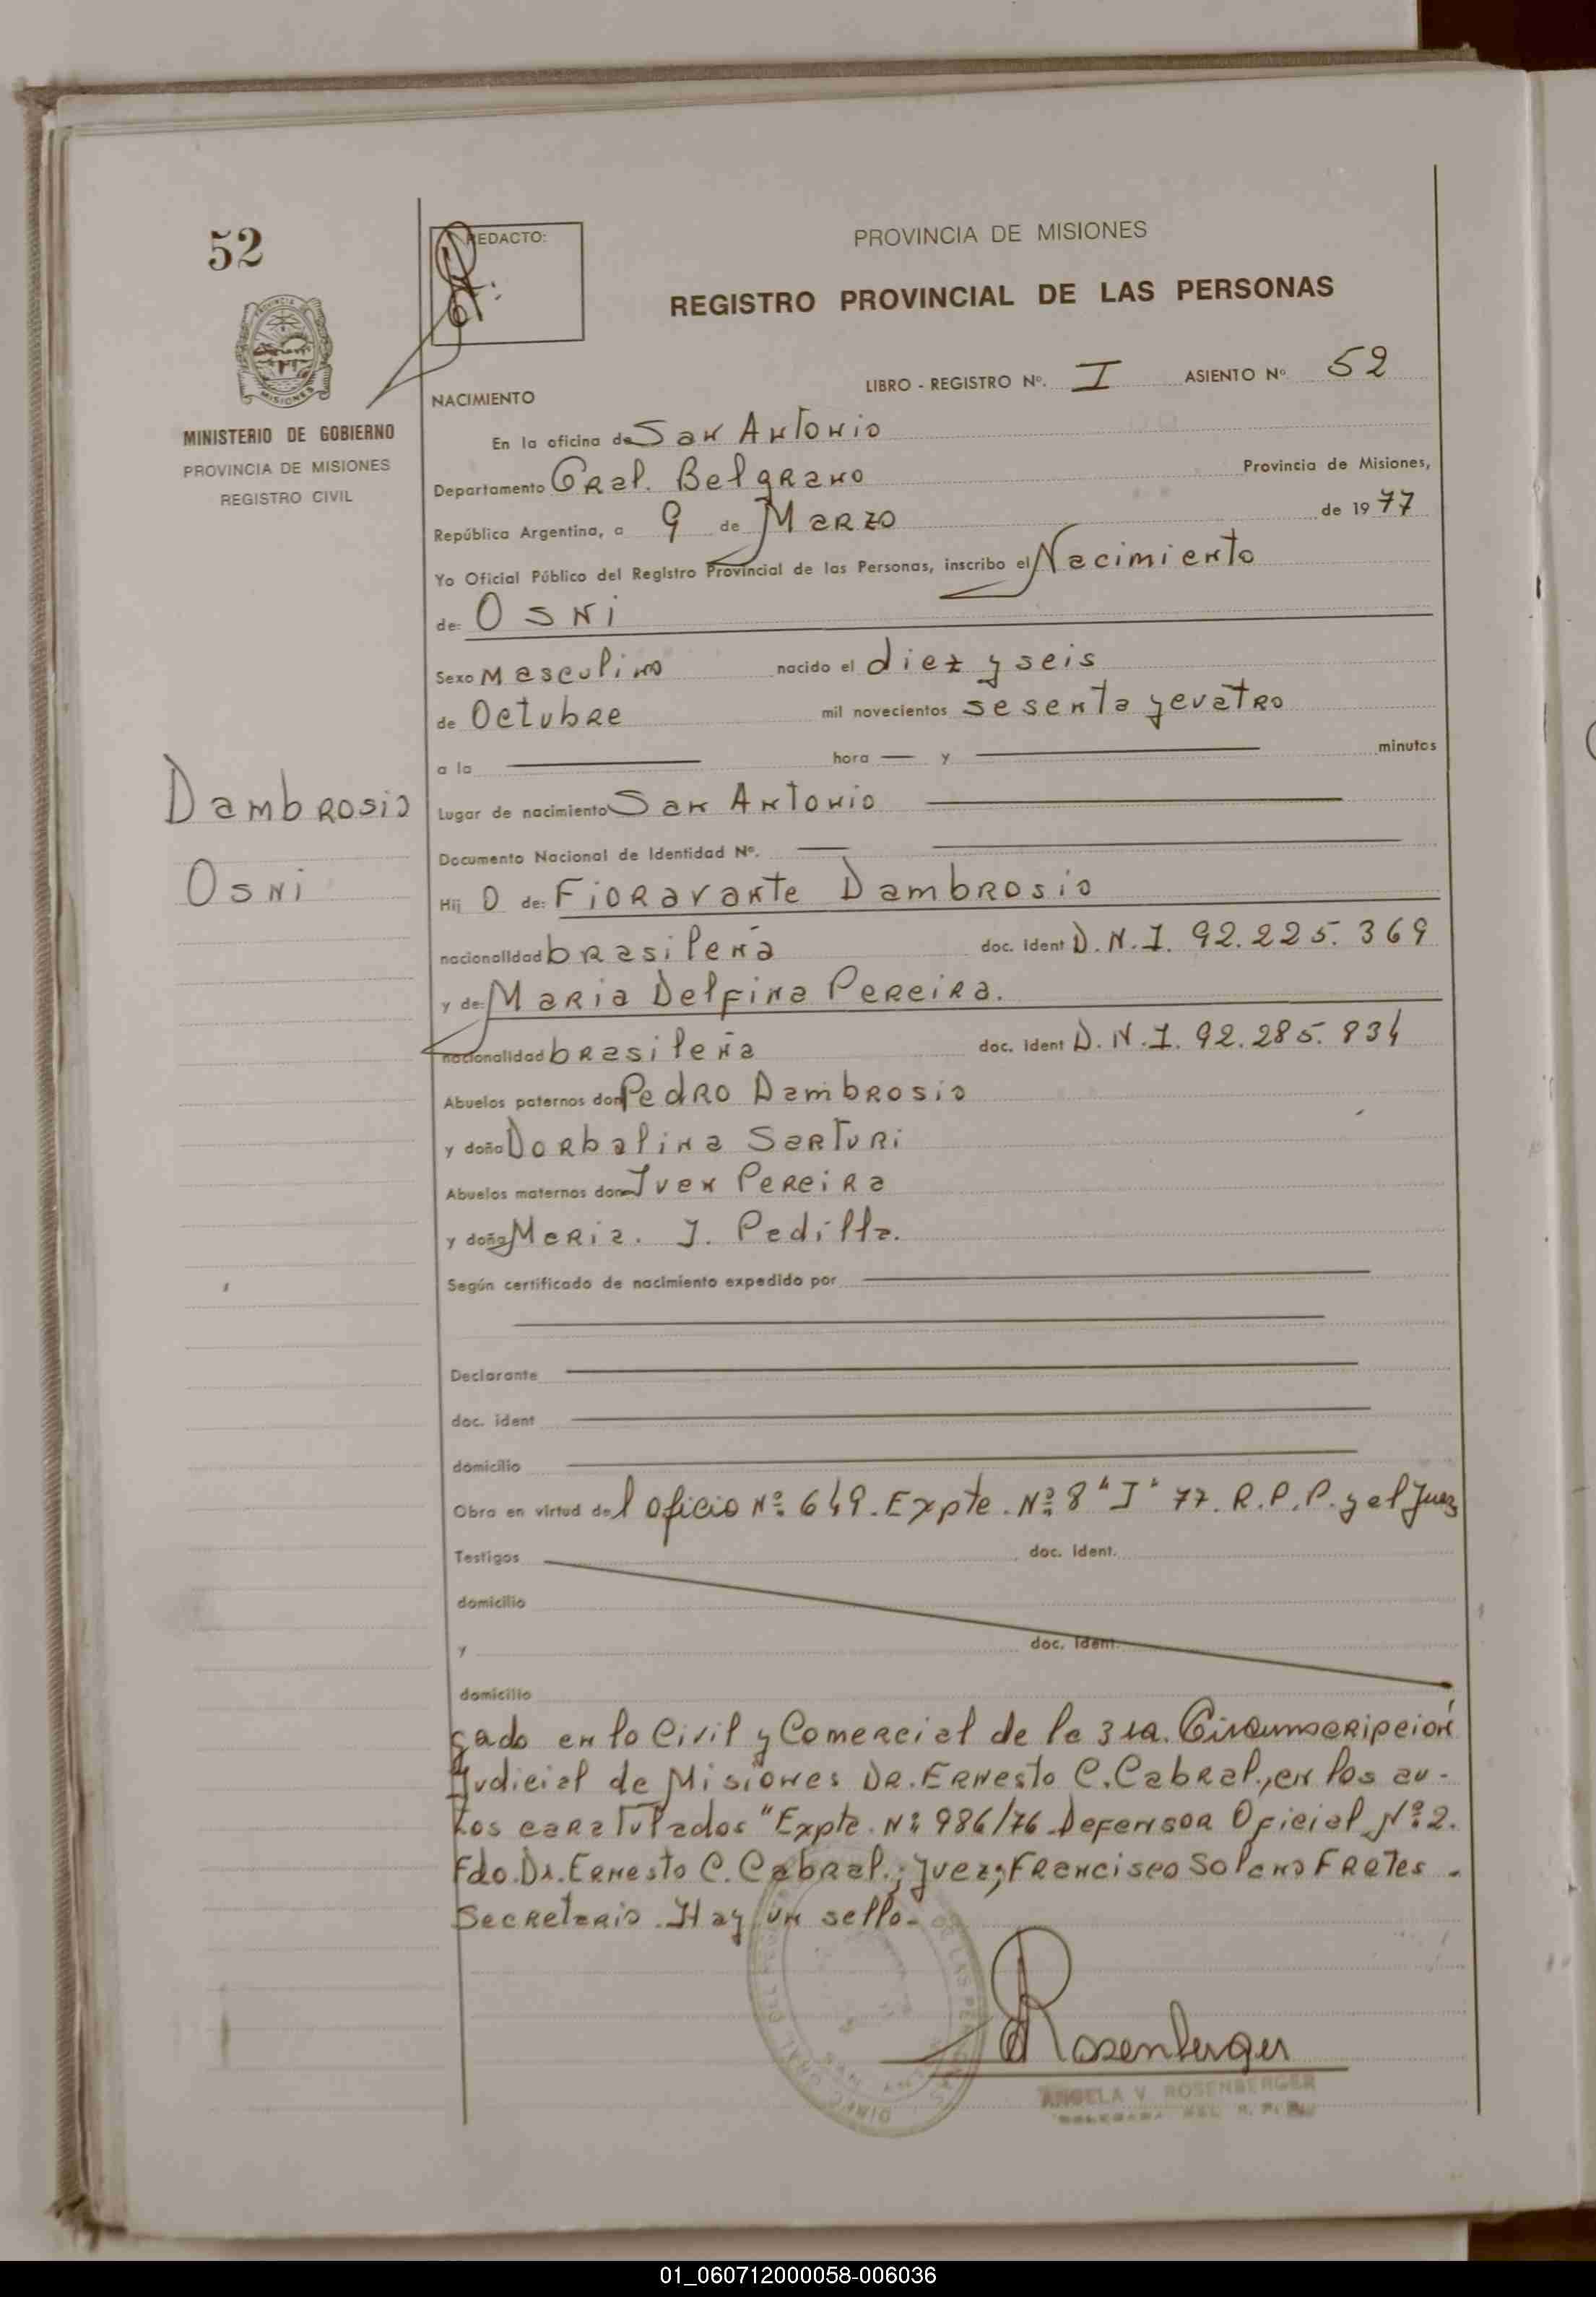 52
REDACTO:
PROVINCIA DE MISIONES
REGISTRO PROVINCIAL DE LAS PERSONAS
PROVINCIA
MISIONES
MINISTERIO DE GOBIERNO
PROVINCIA DE MISIONES
REGISTRO CIVIL
LIBRO - REGISTRO Nº. I ASIENTO Nº 52
NACIMIENTO
En la oficina de San Antonio
Departamento Gral. Belgrano Provincia de Misiones,
República Argentina, a 9 de Marzo de 1977
Yo Oficial Público del Registro Provincial de las Personas, inscribo el Nacimiento
de: Osni
Sexo Masculino nacido el diez y seis
de Octubre mil novecientos sesenta y cuatro
a la hora y minutos
Dambrosio
Osni
Lugar de nacimiento San Antonio
Documento Nacional de Identidad Nº.
Hij o de: Fioravante Dambrosio
nacionalidad brasileña doc. ident D.N.I. 92.225.369
y de: Maria Delfina Pereira.
nacionalidad brasileña doc. ident D.N.I. 92.285.834
Abuelos paternos don Pedro Dambrosio
y doña Dorbalina Sarturi
Abuelos maternos don Iven Pereira
y doña Maria. J. Padilla.
Según certificado de nacimiento expedido por
Declarante
doc. ident
domicilio
Obra en virtud del oficio Nº 649. Expte. Nº 8 "I" 77. R.P.P. y el Juez
Testigos doc. ident.
domicilio
y doc. ident.
domicilio
gado en lo Civil y Comercial de la 3ra. Circunscripción
Judicial de Misiones Dr. Ernesto C. Cabral, en los au-
tos caratulados "Expte. Nº 986/76 Defensor Oficial Nº 2.
Fdo. Dr. Ernesto C. Cabral.; Juez; Francisco Solano Fretes -
Secretario. Hay un sello.-
Rosenberger
ANGELA V. ROSENBERGER
01_060712000058-006036